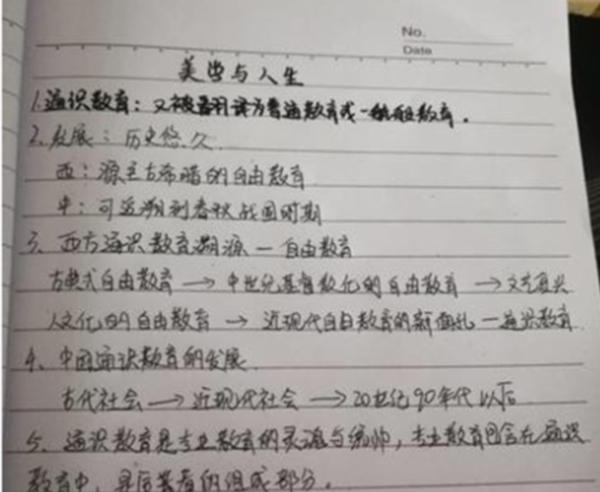 No.
Date
美学与人生
1.通识教育：又被翻译为普通教育或一般教育。
2.发展：历史悠久
西：源至古希腊的自由教育
中：可追溯到春秋战国时期
3、西方通识教育溯源—自由教育
古典式自由教育→中世纪基督教化的自由教育→文艺复兴
人文化的自由教育→近现代自由教育的新面孔—通识教育
4、中国通识教育的发展
古代社会→近现代社会→20世纪90年代以后
5、通识教育是专业教育的灵魂与统帅，专业教育包含在通识
教育中，是后者的组成部分。